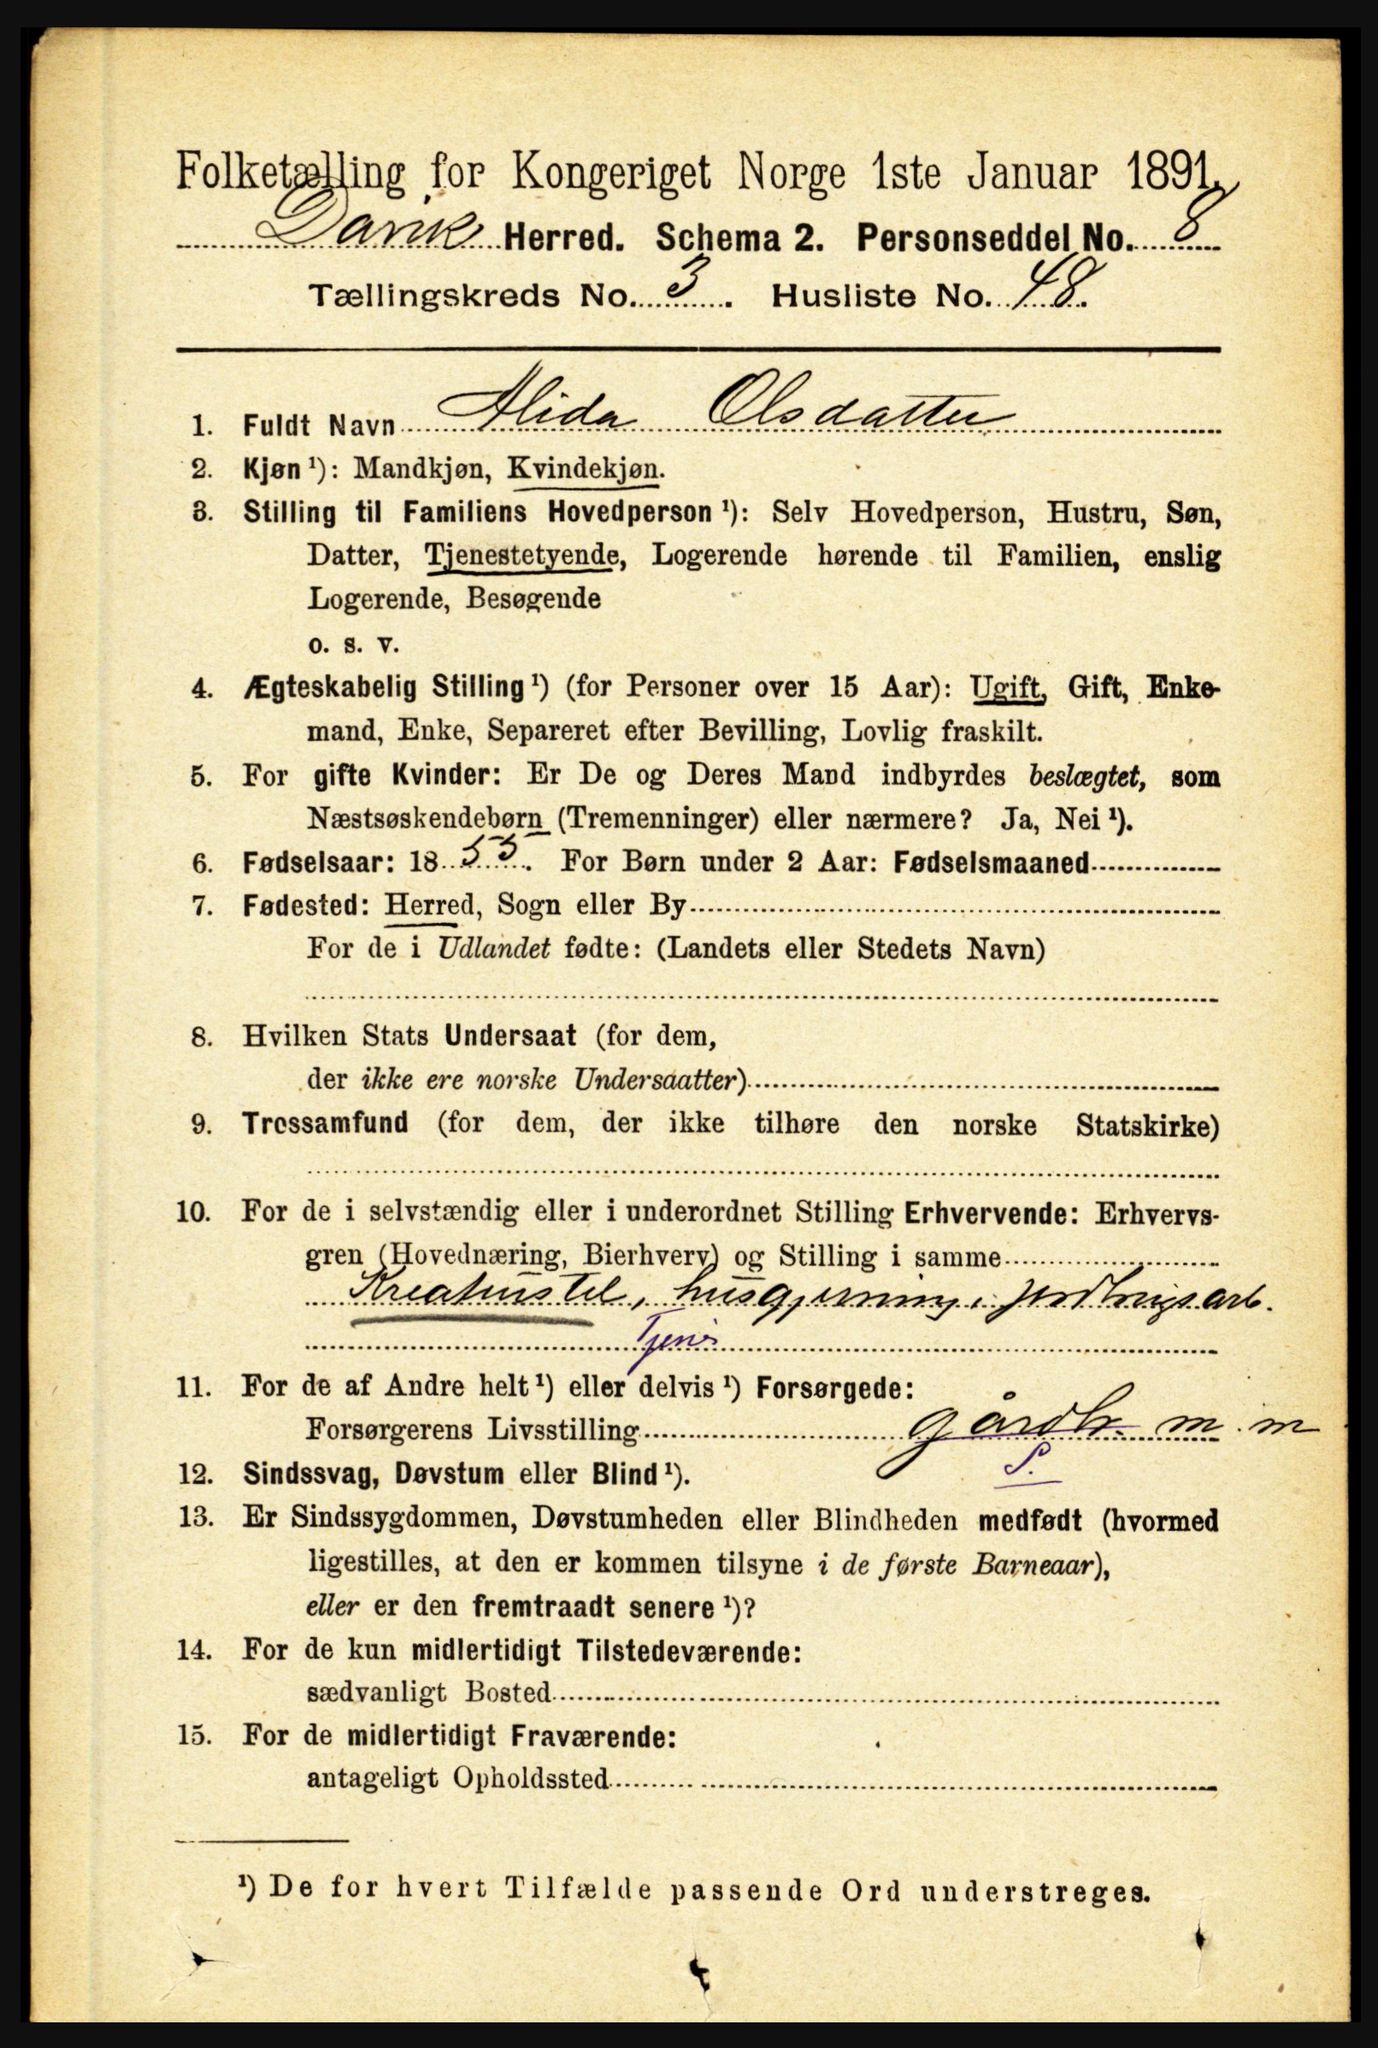 Folketælling for Kongeriget Norge 1ste Januar 1891.
Davik Herred. Schema 2. Personseddel No. 8
Tællingskreds No. 3. Husliste No. 48.
1. Fuldt Navn Alida Olsdatter
2. Kjøn ¹): Mandkjøn, Kvindekjøn.
3. Stilling til Familiens Hovedperson ¹): Selv Hovedperson, Hustru, Søn,
Datter, Tjenestetyende, Logerende hørende til Familien, enslig
Logerende, Besøgende
o. s. v.
4. Ægteskabelig Stilling ¹) (for Personer over 15 Aar): Ugift, Gift, Enke-
mand, Enke, Separeret efter Bevilling, Lovlig fraskilt.
5. For gifte Kvinder: Er De og Deres Mand indbyrdes beslægtet, som
Næstsøskendebørn (Tremenninger) eller nærmere? Ja, Nei ¹).
6. Fødselsaar: 1855. For Børn under 2 Aar: Fødselsmaaned
7. Fødested: Herred, Sogn eller By
For de i Udlandet fødte: (Landets eller Stedets Navn)
8. Hvilken Stats Undersaat (for dem,
der ikke ere norske Undersaatter)
9. Trossamfund (for dem, der ikke tilhøre den norske Statskirke)
10. For de i selvstændig eller i underordnet Stilling Erhvervende: Erhvervs-
gren (Hovednæring, Bierhverv) og Stilling i samme
Kreaturstel, husgjerning, jordbrugsarb.
Tjener
11. For de af Andre helt ¹) eller delvis ¹) Forsørgede:
Forsørgerens Livsstilling gårdbr. m. m
S.
12. Sindssvag, Døvstum eller Blind ¹).
13. Er Sindssygdommen, Døvstumheden eller Blindheden medfødt (hvormed
ligestilles, at den er kommen tilsyne i de første Barneaar),
eller er den fremtraadt senere ¹)?
14. For de kun midlertidigt Tilstedeværende:
sædvanligt Bosted
15. For de midlertidigt Fraværende:
antageligt Opholdssted
¹) De for hvert Tilfælde passende Ord understreges.